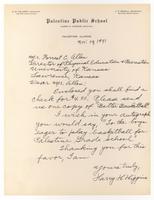 Palestine Public School
PALESTINE, ILLINOIS
Nov. 29, 1937
Mr. Forrest C. Allen
Director of Physical Education & Recreation
University of Kansas
Lawrence, Kansas
Dear Mr. Allen:
Enclosed you shall find a
check for $4.00. Please send
us one copy of Better Basketball.
I wish in your autograph
you would say, To the boys
eager to play basketball for
Palestine Grade School.
Thanking you for this
favor, I am
Yours truly,
Harry H. Higgins